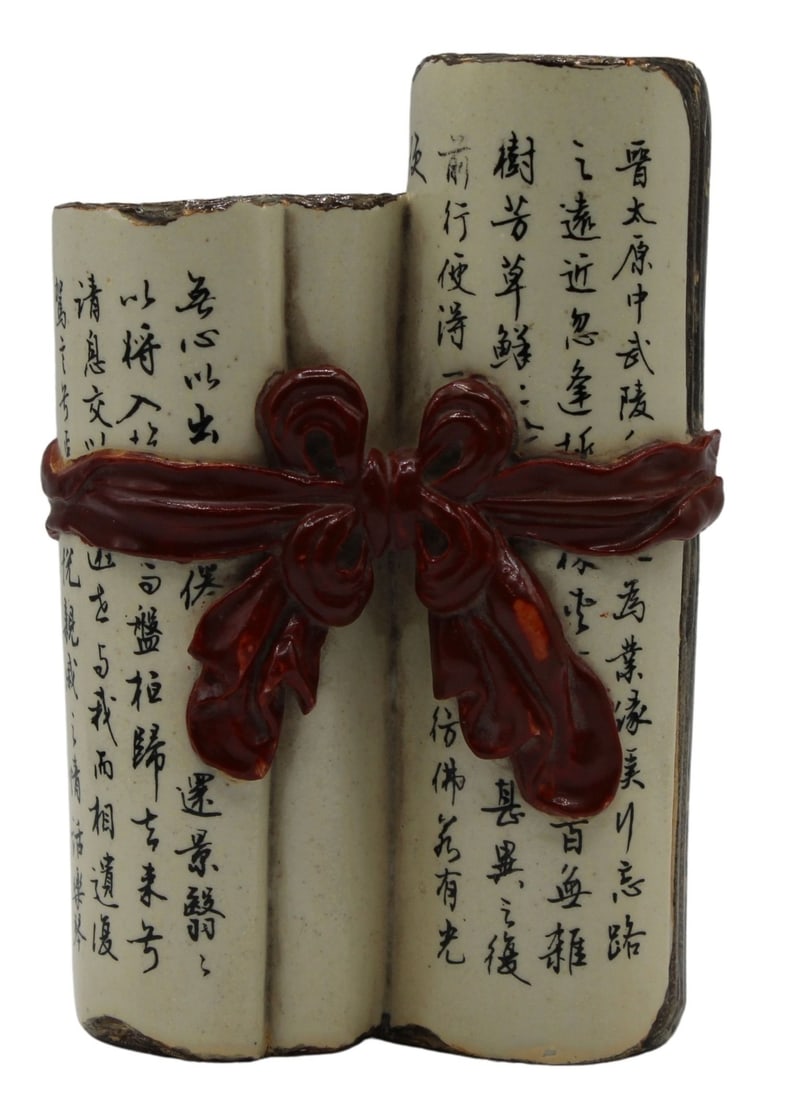 晉太原中武陵 為業緣奚行忘路
之遠近忽逢桃 百無雜
樹芳草鮮〻 甚異之復
前行便得一 彷佛若有光
便
無心以出 還景翳〻
以將入 而盤桓歸去来兮
請息交以 世与我而相遺復
駕言兮 悅親戚之情話樂琴